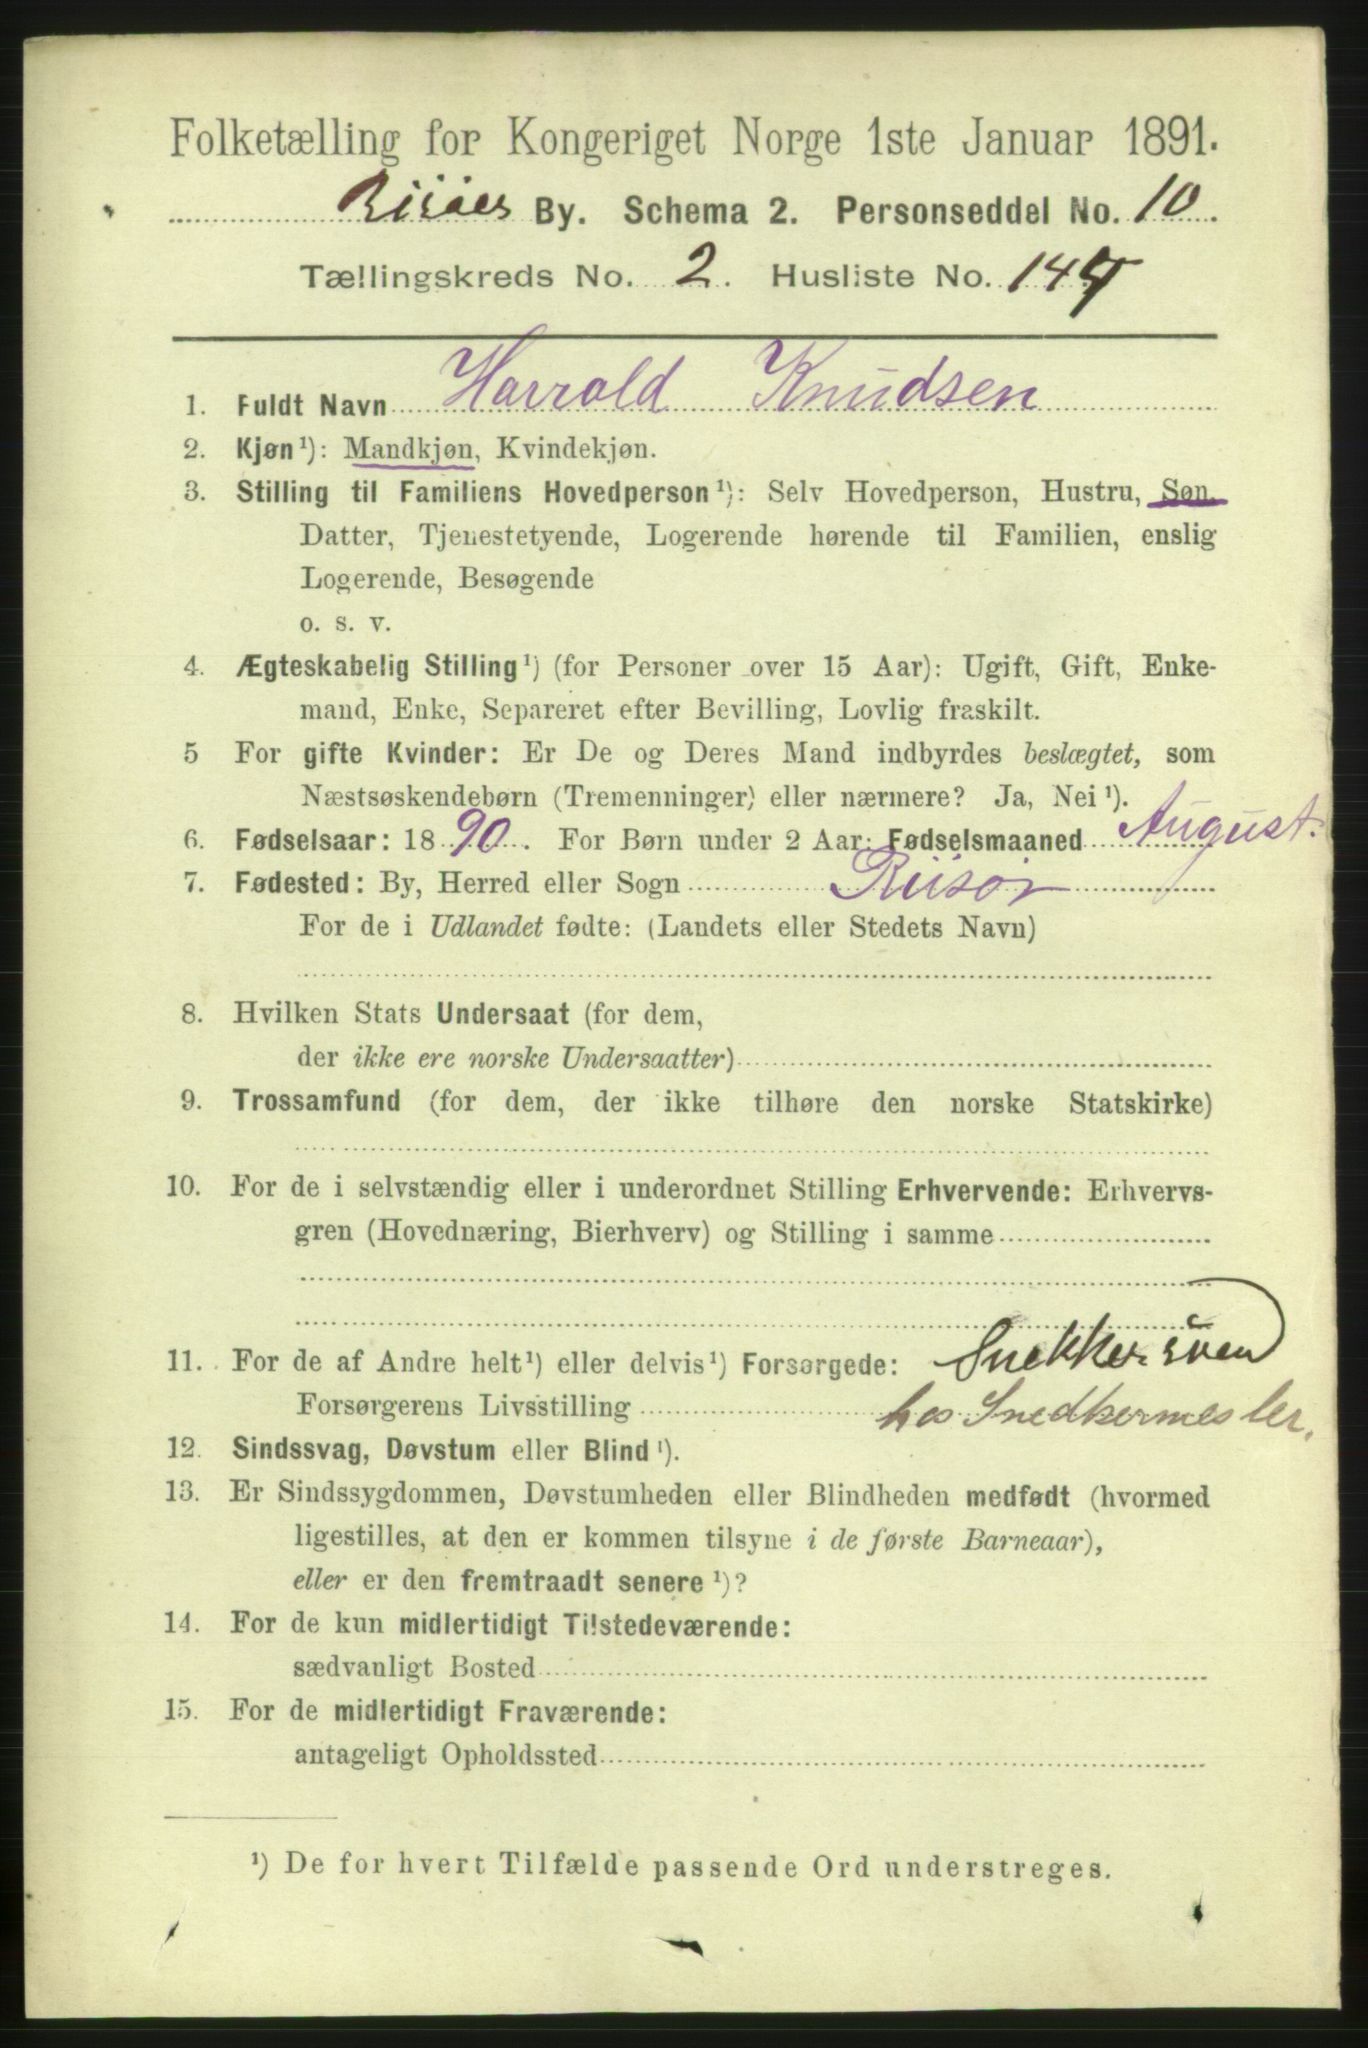 Folketælling for Kongeriget Norge 1ste Januar 1891.
Risøer By. Schema 2. Personseddel No. 10.
Tællingskreds No. 2. Husliste No. 144
1. Fuldt Navn Harrald Knudsen
2. Kjøn¹): Mandkjøn, Kvindekjøn.
3. Stilling til Familiens Hovedperson¹): Selv Hovedperson, Hustru, Søn,
Datter, Tjenestetyende, Logerende hørende til Familien, enslig
Logerende, Besøgende
o. s. v.
4. Ægteskabelig Stilling¹) (for Personer over 15 Aar): Ugift, Gift, Enke-
mand, Enke, Separeret efter Bevilling, Lovlig fraskilt.
5 For gifte Kvinder: Er De og Deres Mand indbyrdes beslægtet, som
Næstsøskendebørn (Tremenninger) eller nærmere? Ja, Nei¹).
6. Fødselsaar: 1890. For Børn under 2 Aar: Fødselsmaaned August.
7. Fødested: By, Herred eller Sogn Riisør
For de i Udlandet fødte: (Landets eller Stedets Navn)
8. Hvilken Stats Undersaat (for dem,
der ikke ere norske Undersaatter)
9. Trossamfund (for dem, der ikke tilhøre den norske Statskirke)
10. For de i selvstændig eller i underordnet Stilling Erhvervende: Erhvervs-
gren (Hovednæring, Bierhverv) og Stilling i samme
11. For de af Andre helt¹) eller delvis¹) Forsørgede: Snekkersven
Forsørgerens Livsstilling hos Snedkermester.
12. Sindssvag, Døvstum eller Blind¹).
13. Er Sindssygdommen, Døvstumheden eller Blindheden medfødt (hvormed
ligestilles, at den er kommen tilsyne i de første Barneaar),
eller er den fremtraadt senere¹)?
14. For de kun midlertidigt Tilstedeværende:
sædvanligt Bosted
15. For de midlertidigt Fraværende:
antageligt Opholdssted
¹) De for hvert Tilfælde passende Ord understreges.